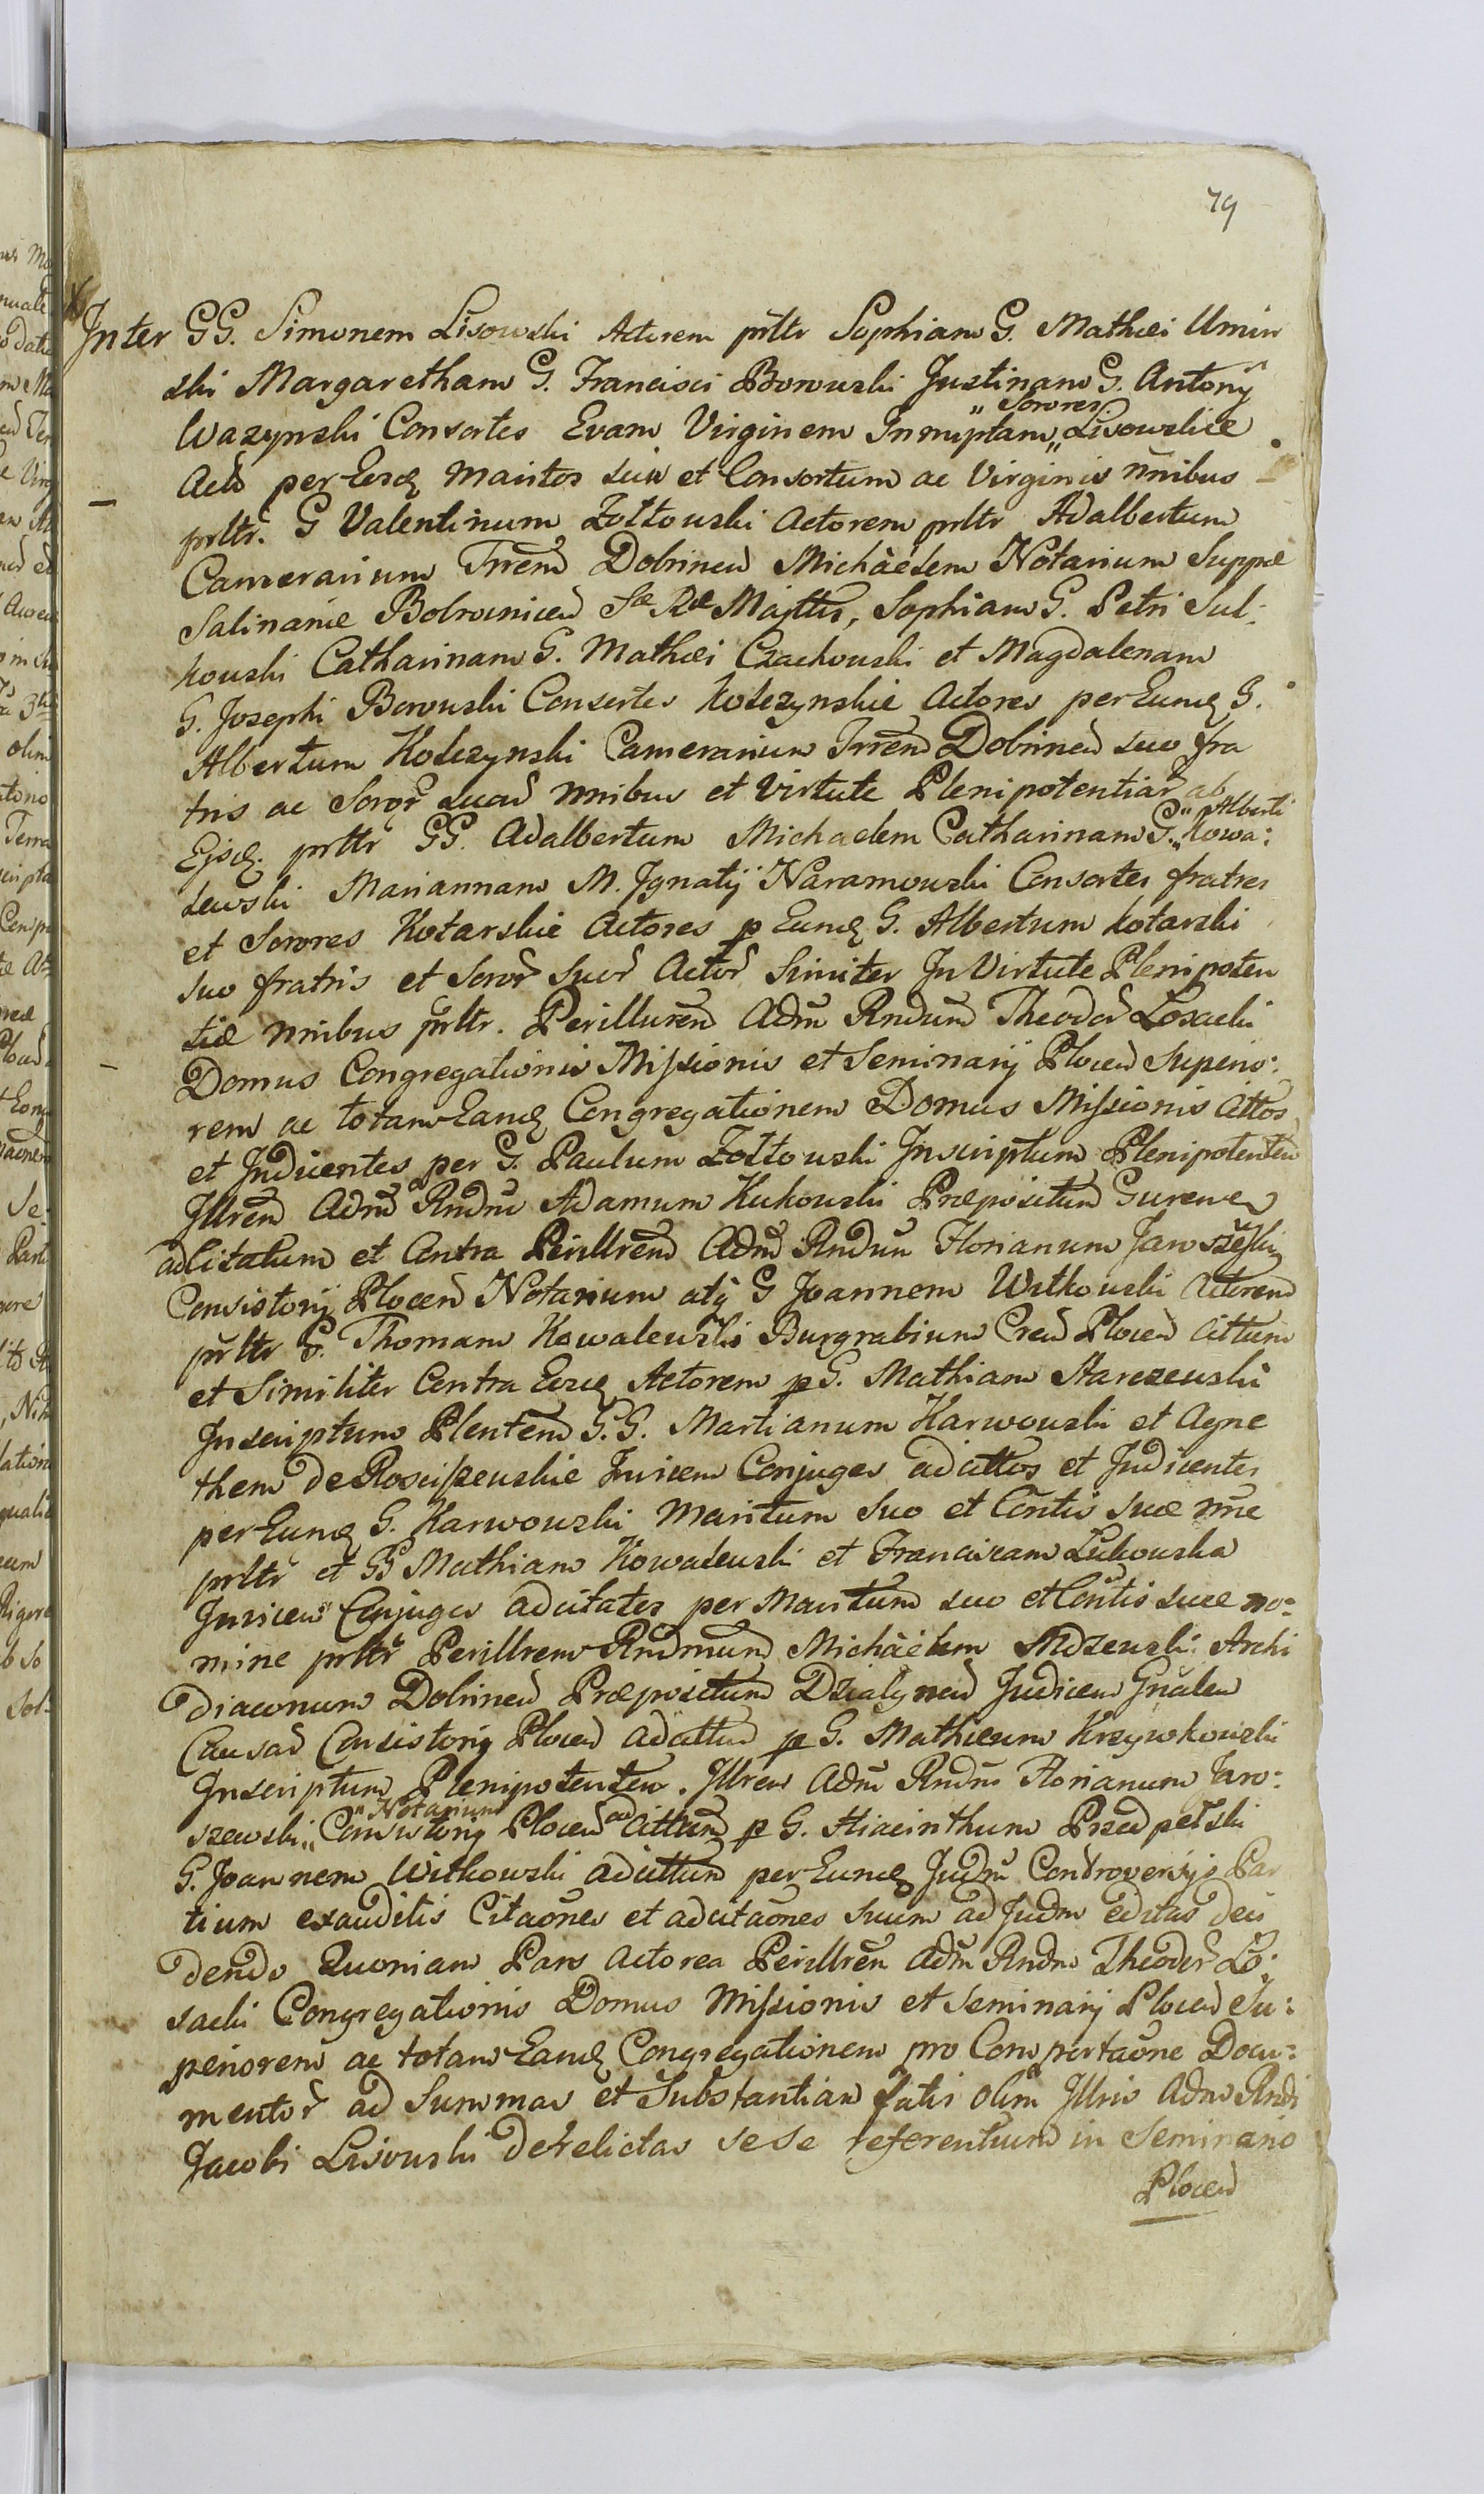 79
Inter GG. Simonem Lisowski Actorem prltr Sophiam G. Mathæi Umin
ski Margaretham G. Francisci Borowski Justinam G. Antonij
Wazynski Consortes Evam Virginem Innuptam „ Sorores „ Lisowskie
Actō per Eosq maritos suis et Consortum ac Virginis nnibus
prltr. G Valentinum Zołtowski Actorem prltr Adalbertum
Camerarium Trrem Dobrinen Michäelem Notarium Suppæ
Salinariæ Bobrownicen Sæ Ræ Majttis, Sophiam G. Petri Sul:
kowski Catharinam G. Mathæi Czachowski et Magdalenam
G. Josephi Borowski Consortes Kołczynskie Actores per Eumq G.
Albertum Kołczynski Camerarium Trrem Dobrinen suo fra
tris ac Soror suar nnibus et Virtute Plenipotentiar ab
Ejsq. prltr GG. Adalbertum Michaelem Catharinam G. „ Alberti „ Kowa:
lewski Mariannam M. Ignatij Naramowski Consortes fratres
et Sorores Kotarskie Actores p Eumq G. Albertum Kotarski
suo fratris et Soror Suor Actor Simiter In Virtute Plenipoten
tiæ nnibus prltr. Perillurem Adm Rndum Theodor Losacki
Domus Congregationis Missionis et Seminarij Plocen Superio:
rem ac totam Eamq Congregationem Domus Missionis Cittos
et Inducentes per G. Paulum Zołtowski Inscriptum Plenipotenten
Illrem Adm Rndm Adamum Kukowski Præpositum Gurenen
adcitatum et Contra Perillrem Adm Rndum Florianum Jaroszewski
Consistorij Plocen Notarium atq G Joannem Witkowski Actorem
prltr G. Thomam Kowalewski Burgrabium Cren Plocen Cittum
et Similiter Contra Eosq Actorem p G. Mathiam Starczewski
Inscriptum Plentem G.G. Martianum Karwowski et Agne
them de Rosciszewskie Invicem Conjuges adcittos et Inducentes
per Eumq G. Karwowski Maritum Suo et Contis suæ nne
prltr et GG Mathiam Kowalewski et Franciscam Lukowska
Invicem Conjuges adcitatos per Maritum suo et Contis suæ no:
mine prltr Perillrem Rndmum Michäelem Mdzewski Archi
diaconum Dobrinen Præpositum Dzialynen Judicem Gnalem
Causar Consistorij Plocen adcittum p G. Mathæum Krzywkowski
Inscriptum Plenipotenten. Illrem Adm Rndm Florianum Jaro:
szewski „ Notarium „ Consistorij Plocen ad Cittum p G. Hiacinthum Przedpełski
G. Joannem Witkowski adcittum per Eumq Judm Controversijs Par
tium exauditis Citaones et adcitaones suum ad Judm editas deci
dendo Quoniam Pars Actorea Perillrem Adm Rndm Theodor Lo:
sacki Congregationis Domus Missionis et Seminarij Plocen Su:
periorem ac totam Eamq Congregationem pro Comportaone Docu:
mentor ad Summas et Substantiam fatis olim Illris Adm Rndi
Jacobi Lisowski derelictas sese referentium in Seminario
Plocen